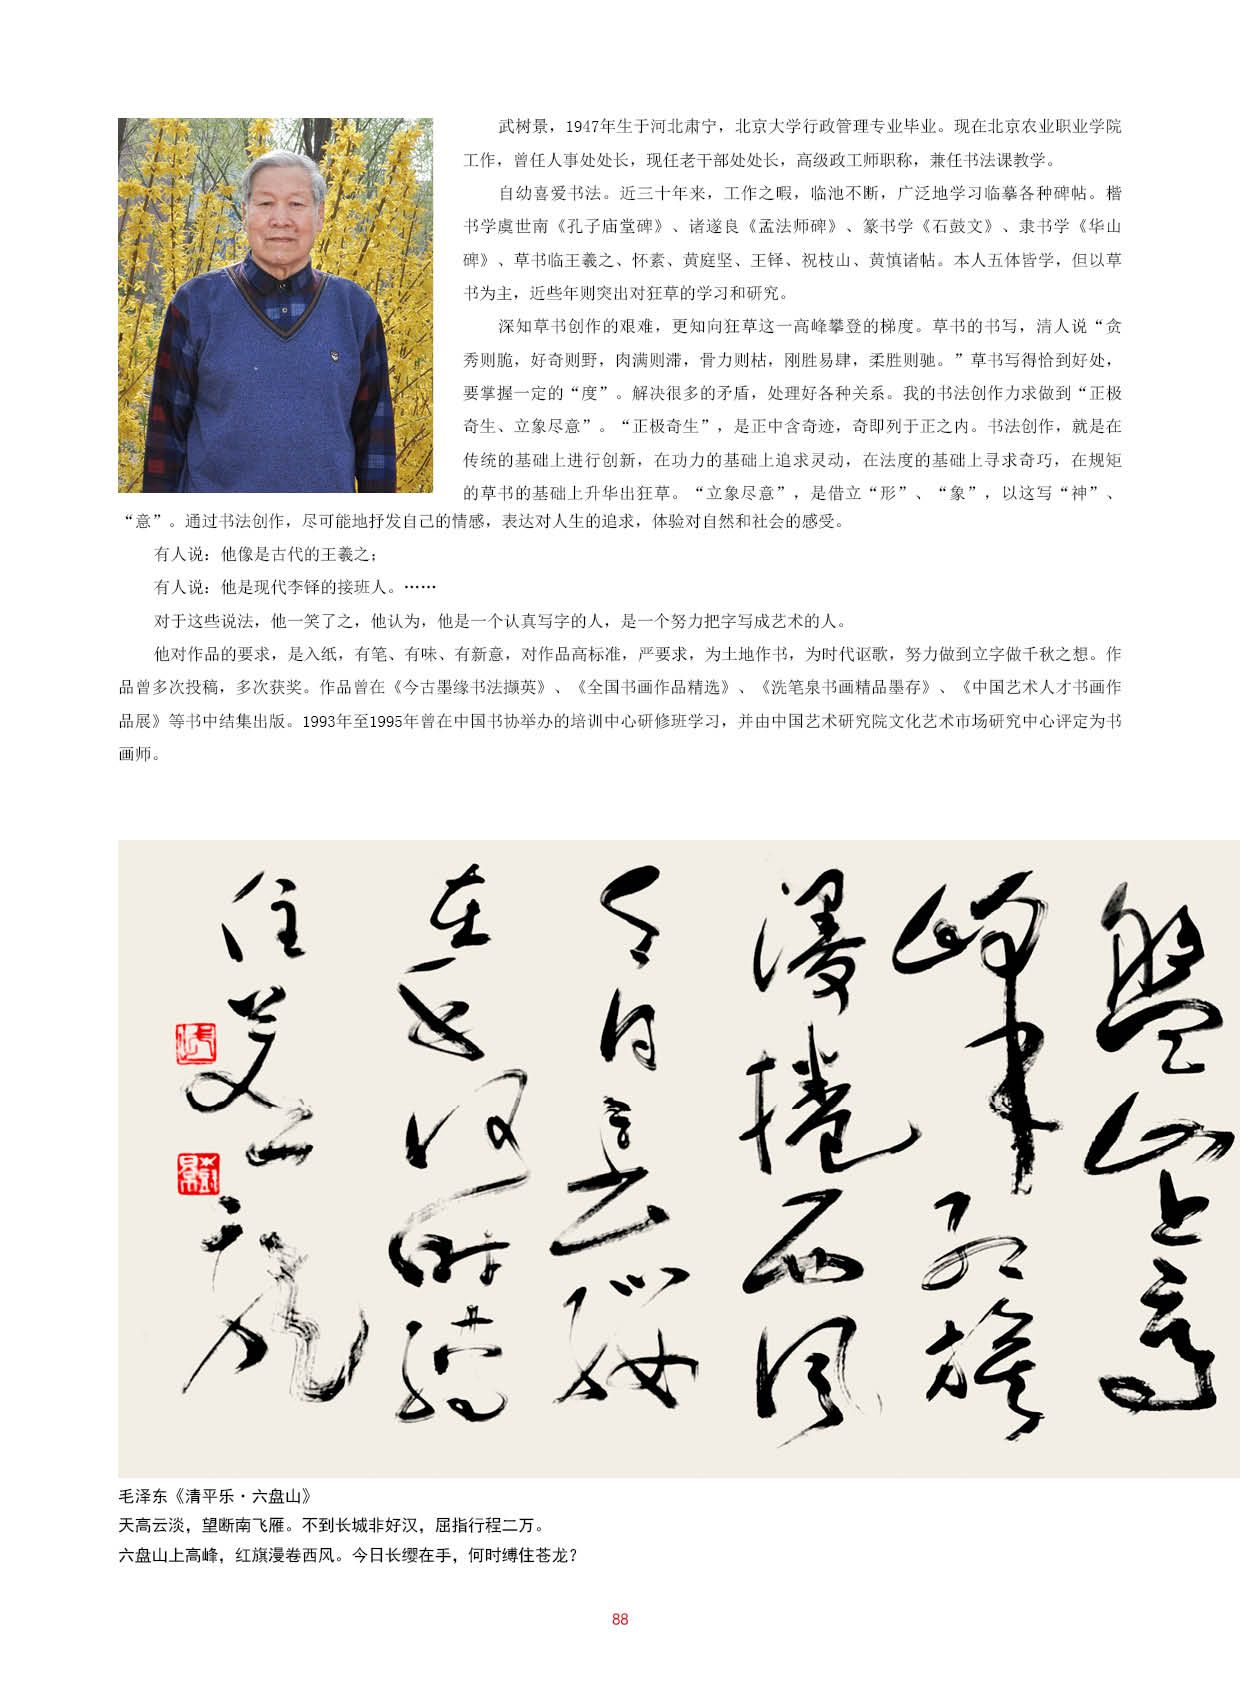 武树景，1947年生于河北肃宁，北京大学行政管理专业毕业。现在北京农业职业学院
工作，曾任人事处处长，现任老干部处处长，高级政工师职称，兼任书法课教学。
自幼喜爱书法。近三十年来，工作之暇，临池不断，广泛地学习临摹各种碑帖。楷
书学虞世南《孔子庙堂碑》、诸遂良《孟法师碑》、篆书学《石鼓文》、隶书学《华山
碑》、草书临王羲之、怀素、黄庭坚、王铎、祝枝山、黄慎诸帖。本人五体皆学，但以草
书为主，近些年则突出对狂草的学习和研究。
深知草书创作的艰难，更知向狂草这一高峰攀登的梯度。草书的书写，清人说“贪
秀则脆，好奇则野，肉满则滞，骨力则枯，刚胜易肆，柔胜则驰。”草书写得恰到好处，
要掌握一定的“度”。解决很多的矛盾，处理好各种关系。我的书法创作力求做到“正极
奇生、立象尽意”。“正极奇生”，是正中含奇迹，奇即列于正之内。书法创作，就是在
传统的基础上进行创新，在功力的基础上追求灵动，在法度的基础上寻求奇巧，在规矩
的草书的基础上升华出狂草。“立象尽意”，是借立“形”、“象”，以这写“神”、
“意”。通过书法创作，尽可能地抒发自己的情感，表达对人生的追求，体验对自然和社会的感受。
有人说：他像是古代的王羲之；
有人说：他是现代李铎的接班人。……
对于这些说法，他一笑了之，他认为，他是一个认真写字的人，是一个努力把字写成艺术的人。
他对作品的要求，是入纸，有笔、有味、有新意，对作品高标准，严要求，为土地作书，为时代讴歌，努力做到立字做千秋之想。作
品曾多次投稿，多次获奖。作品曾在《今古墨缘书法撷英》、《全国书画作品精选》、《洗笔泉书画精品墨存》、《中国艺术人才书画作
品展》等书中结集出版。1993年至1995年曾在中国书协举办的培训中心研修班学习，并由中国艺术研究院文化艺术市场研究中心评定为书
画师。
盘山上高
峰红旗
漫捲西风
今日长缨
在手何时缚
住苍龙
毛泽东《清平乐·六盘山》
天高云淡，望断南飞雁。不到长城非好汉，屈指行程二万。
六盘山上高峰，红旗漫卷西风。今日长缨在手，何时缚住苍龙？
88